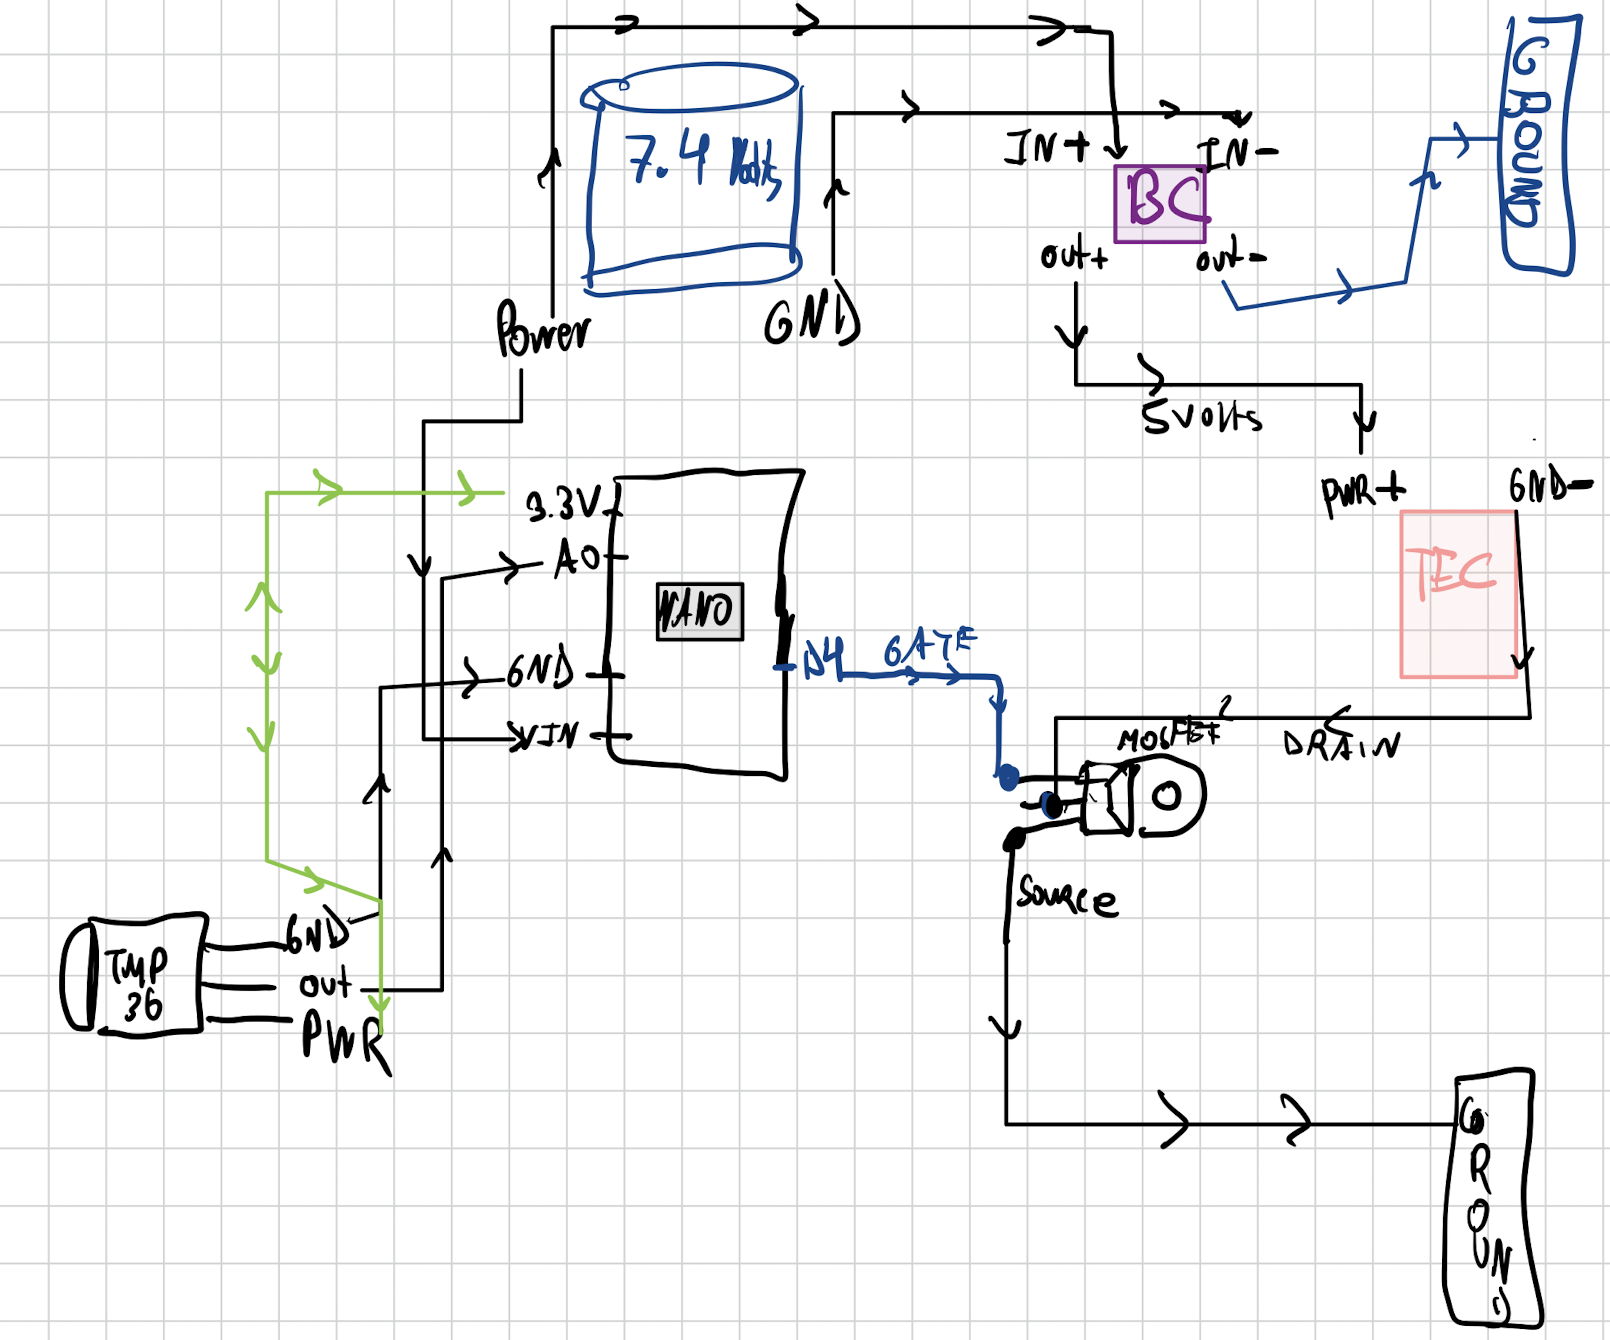 7.4 Volts
IN+
IN-
BC
out+
out-
GROUND
Power
GND
5 volts
PWR+
GND-
TEC
3.3V
A0
NANO
GND
VIN
D4
GATE
MOSFET
DRAIN
Source
TMP
36
GND
out
PWR
GROUND